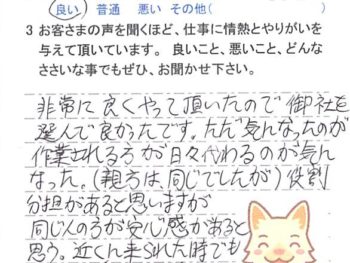 良い 普通 悪い その他(
3 お客さまの声を聞くほど、仕事に情熱とやりがいを
与えて頂いています。 良いこと、悪いこと、どんな
ささいな事でもぜひ、お聞かせ下さい。
非常に良くやって頂いたので御社を
選んで良かったです。ただ気んなったのが
作業される方が日々代わるのが気ん
なった。(親方は、同じでしたが)役割
分担があると思いますが
同じ人の方が安心感があると
思う。近くん来られた時でも